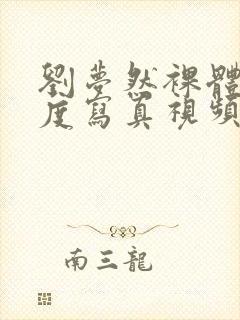 劉夢然裸體
度寫真視頻
南三龍